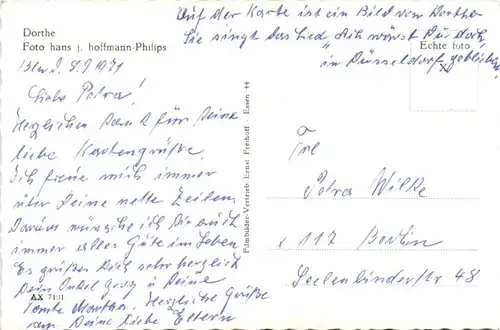 Auf der Karte ist ein Bild von Dorthe
Sie singt das Lied „Ach wärst Du doch
in Düsseldorf geblieben
Dorthe
Foto hans j. hoffmann-Philips
8.7.1971
Liebe Petra!
Herzlichen Dank für Deine
liebe Kartengrüße.
Ich freue mich immer
über Deine nette Zeilen
Darum wünsche ich Dir auch
immer alles Gute im Leben
Es grüßen Dich sehr herzlich
Dein Onkel Georg u Deine
Tante Martha. Herzliche Grüße
an Deine liebe Eltern
AX 7101
Filmbilder-Vertrieb Ernst Freihoff - Essen 44
Echte foto
X
Frl
Petra Wilke
x 117 Berlin
Seelenbinderstr 48